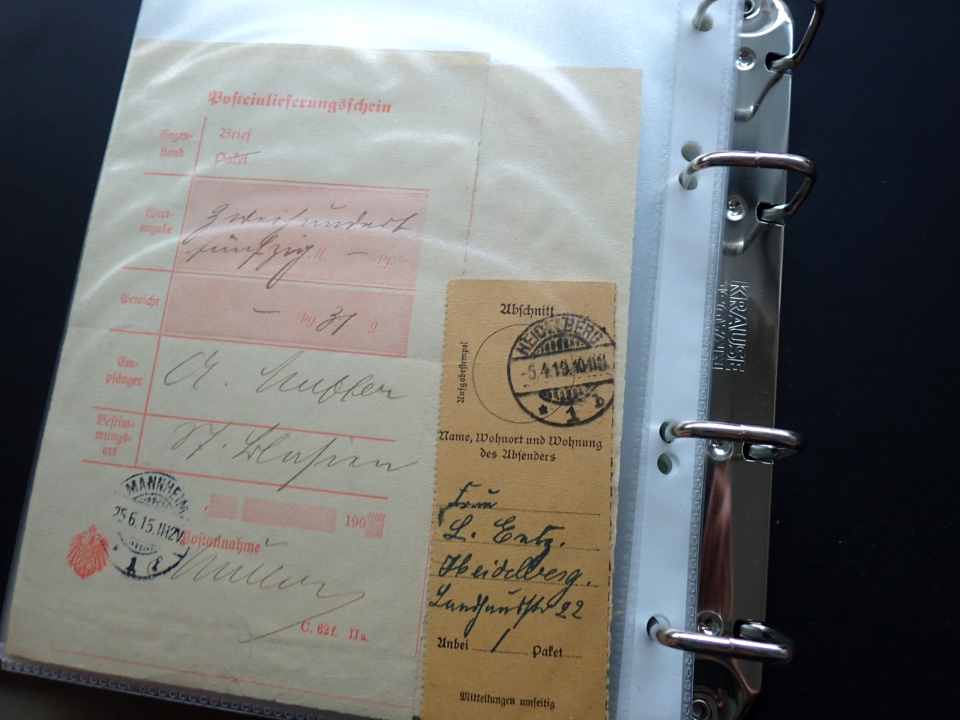 Posteinlieferungsschein
Gegen-
stand
Brief
Paket
Wert-
angabe
Zweihundert
fünfzig M. —
Gewicht
— kg 31 g
Em-
pfänger
A.
Bestim-
mungs-
ort
St. Blasien
MANNHEIM
25.6.15.11-12V.
190
Postannahme
C. 62f. IIa.
Abschnitt
Aufgabestempel
HEIDELBERG
-5.4.19.10-11V.
* 1 b
Name, Wohnort und Wohnung
des Absenders
Frau
L.
Heidelberg.
Landhausstr 22
Anbei 1 Paket
Mitteilungen umseitig
KRAUSE